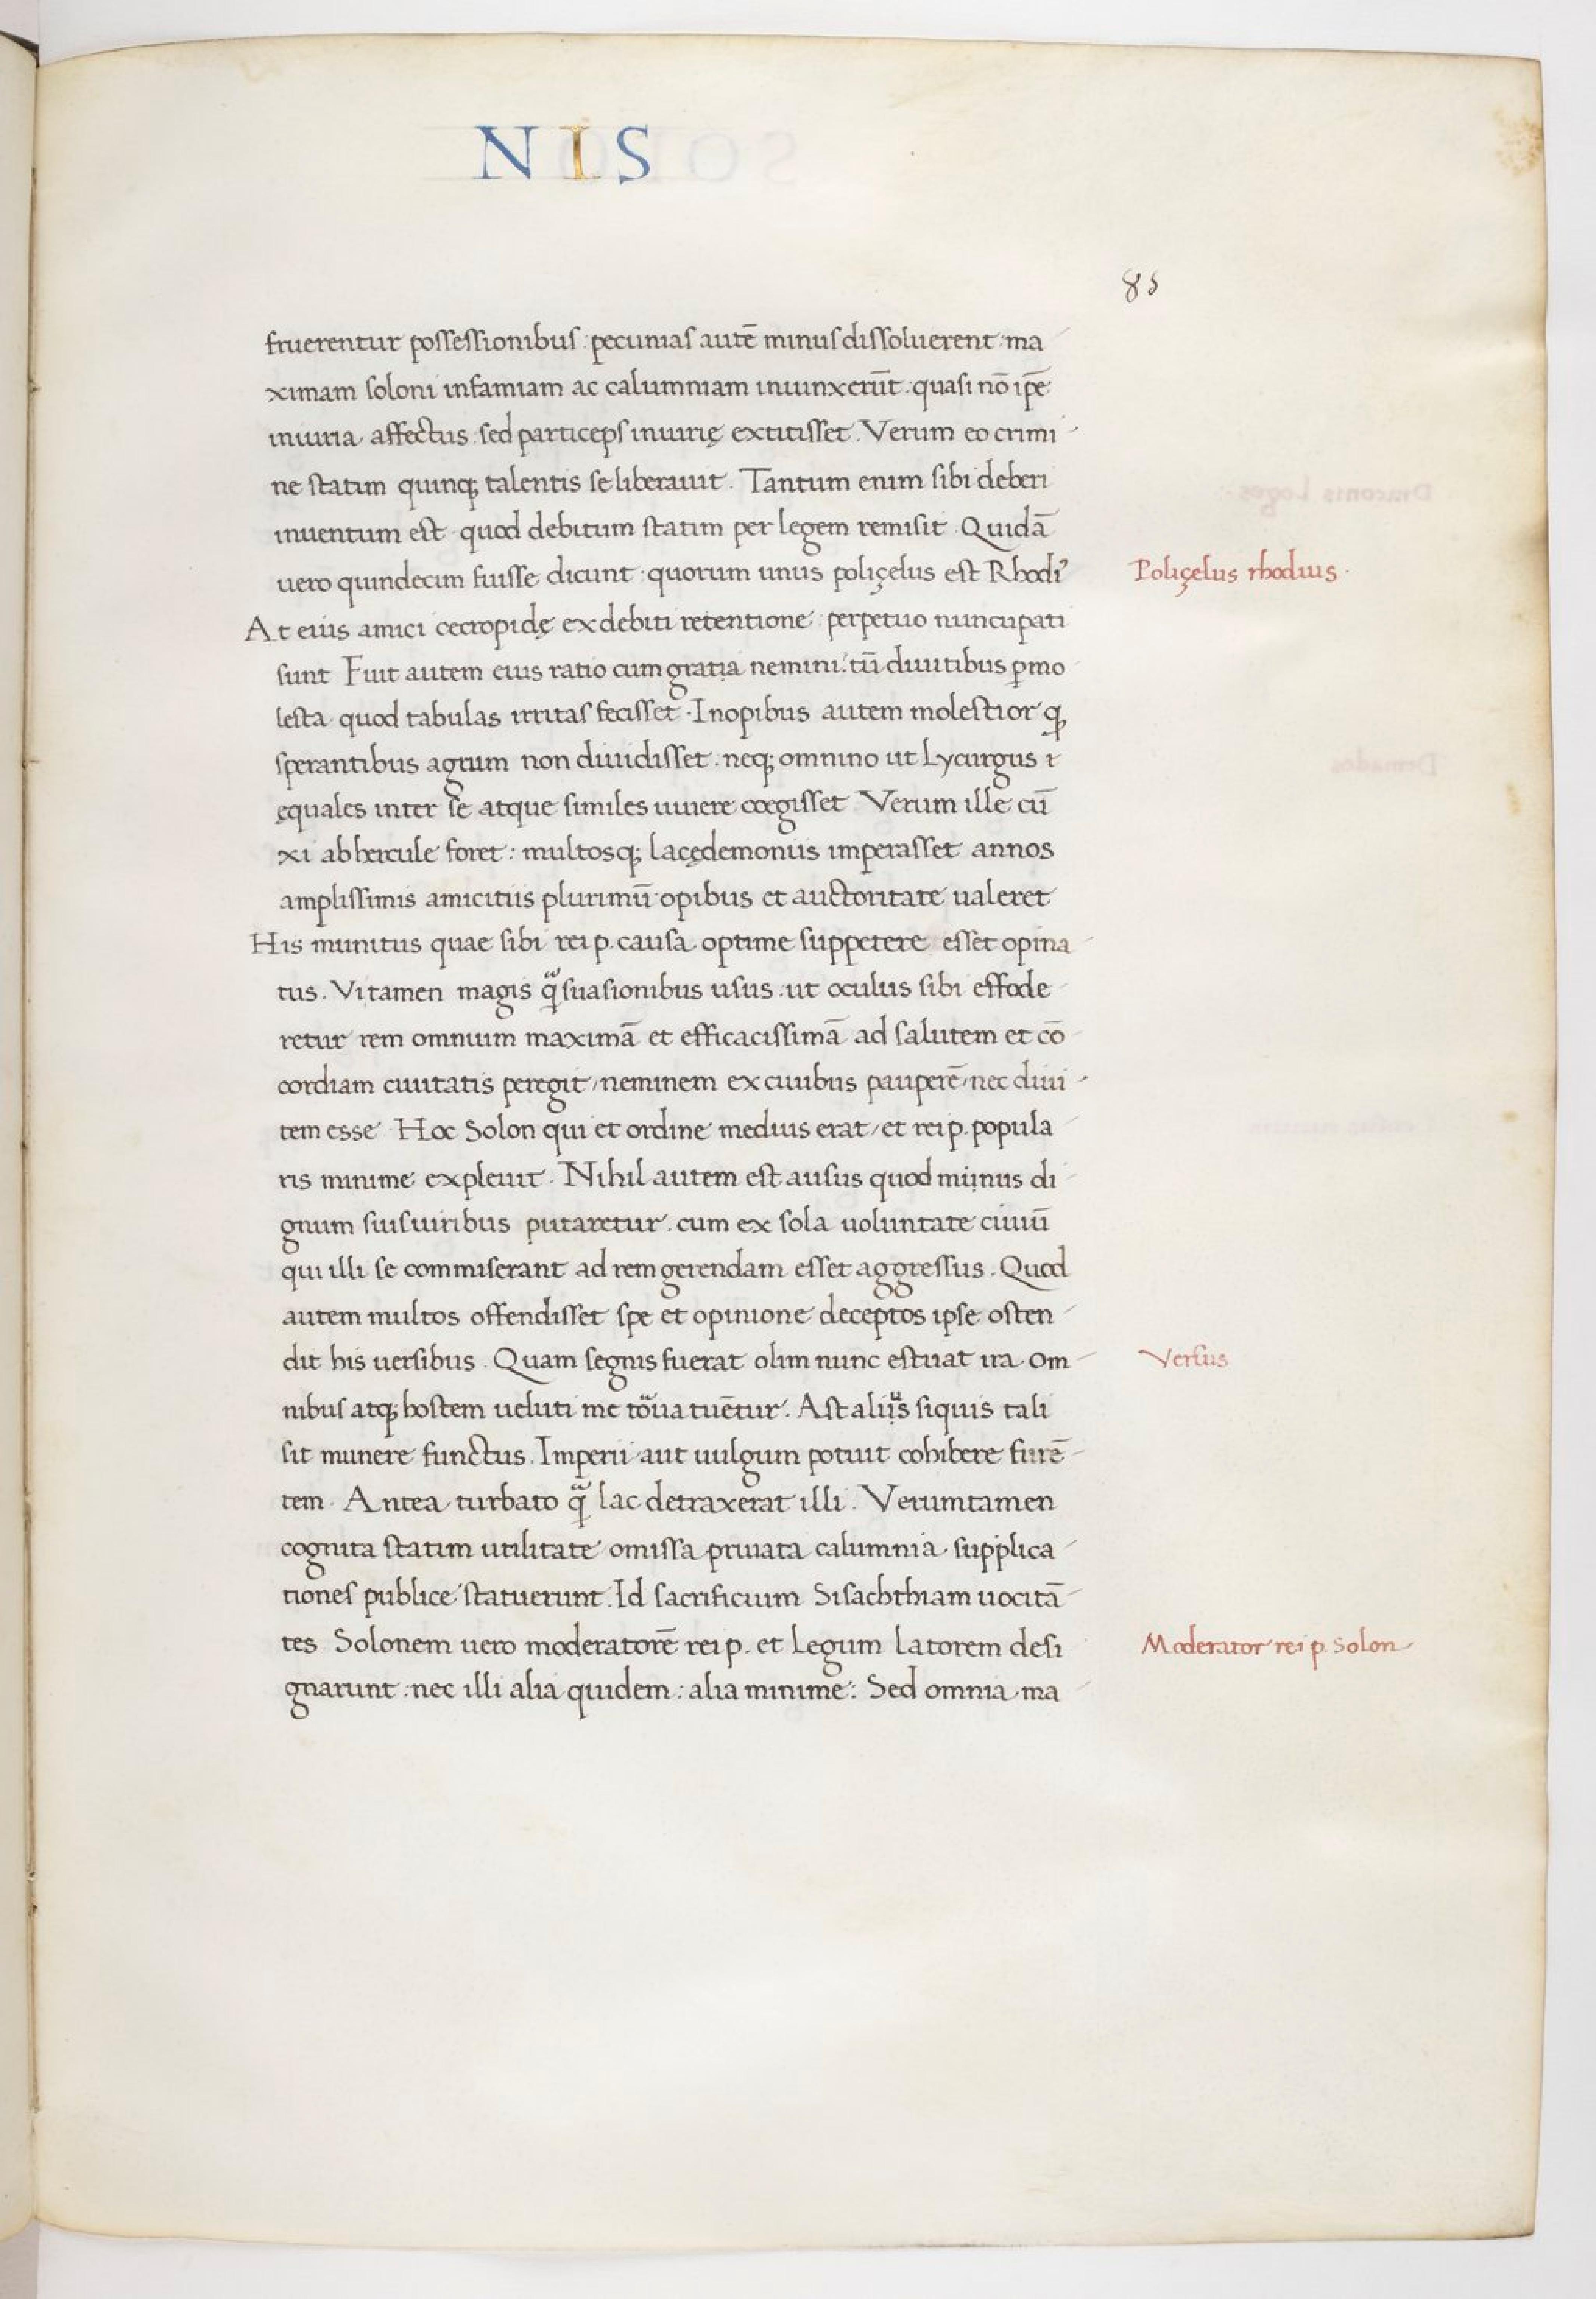 NIS
85
fruerentur possessionibus : pecunias autē minus dissoluerent : ma
ximam soloni infamiam ac calumniam iniunxerūt : quasi nō ip̄e
iniuria affectus : sed particeps iniurię extitisset . Verum eo crimi
ne statim quinq; talentis se liberauit . Tantum enim sibi deberi
inuentum est · quod debitum statim per legem remisit Quidā
uero quindecim fuisse dicunt : quorum unus poliçelus est Rhodiꝰ
Poliçelus rhodius ·
At eius amici cecropidę ex debiti retentione perpetuo nuncupati
sunt Fuit autem eius ratio cum gratia nemini : tū diuitibus ꝑmo
lesta · quod tabulas irritas fecisset · Inopibus autem molestior ꝙ
sperantibus agrum non diuidisset . neq; omnino ut Lycurgus &
ęquales inter se atque similes uiuere coegisset Verum ille cū
xi ab hercule foret : multosq; lacędemoniis imperasset annos
amplissimis amicitiis plurimū opibus et auctoritate ualeret
His munitus quae sibi rei p. causa optime suppetere esset opina
tus . Vi tamen magis ꝗ̃ suasionibus usus . ut oculus sibi effode
retur rem omnium maximā et efficacissimā ad salutem et cō
cordiam ciuitatis peregit / neminem ex ciuibus pauperē / nec diui
tem esse Hoc Solon qui et ordine medius erat / et rei p. popula
ris minime expleuit . Nihil autem est ausus quod minus di
gnum suis uiribus putaretur . cum ex sola uoluntate ciuiū
qui illi se commiserant ad rem gerendam esset aggressus . Quod
autem multos offendisset spe et opinione deceptos ipse osten
dit his uersibus . Quam segnis fuerat olim nunc estuat ira . om
Versus
nibus atq; hostem ueluti me uatuētur . Ast siquis tali
sit munere functus . Imperii aut uulgum potuit cohibere furē
tem . Antea turbato ꝗ̃ lac detraxerat illi . Verumtamen
cognita statim utilitate omissa priuata calumnia . supplica
tiones publice statuerunt . Id sacrificium Sisachthiam uocitā
tes Solonem uero moderatorē rei p. et Legum Latorem desi
Moderator rei p. Solon
gnarunt : nec illi alia quidem : alia minime : Sed omnia . ma